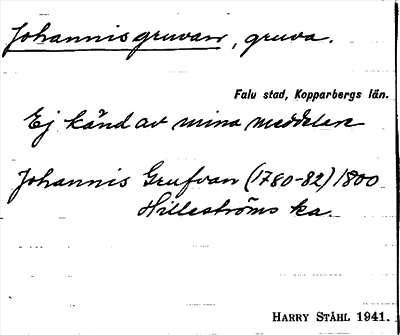 Johannisgruvan, gruva.
Falu stad, Kopparbergs län.
Ej känd av mina meddelare
Johannis Grufvan (1780-82) 1800
Hilleströms ka.
HARRY STÅHL 1941.